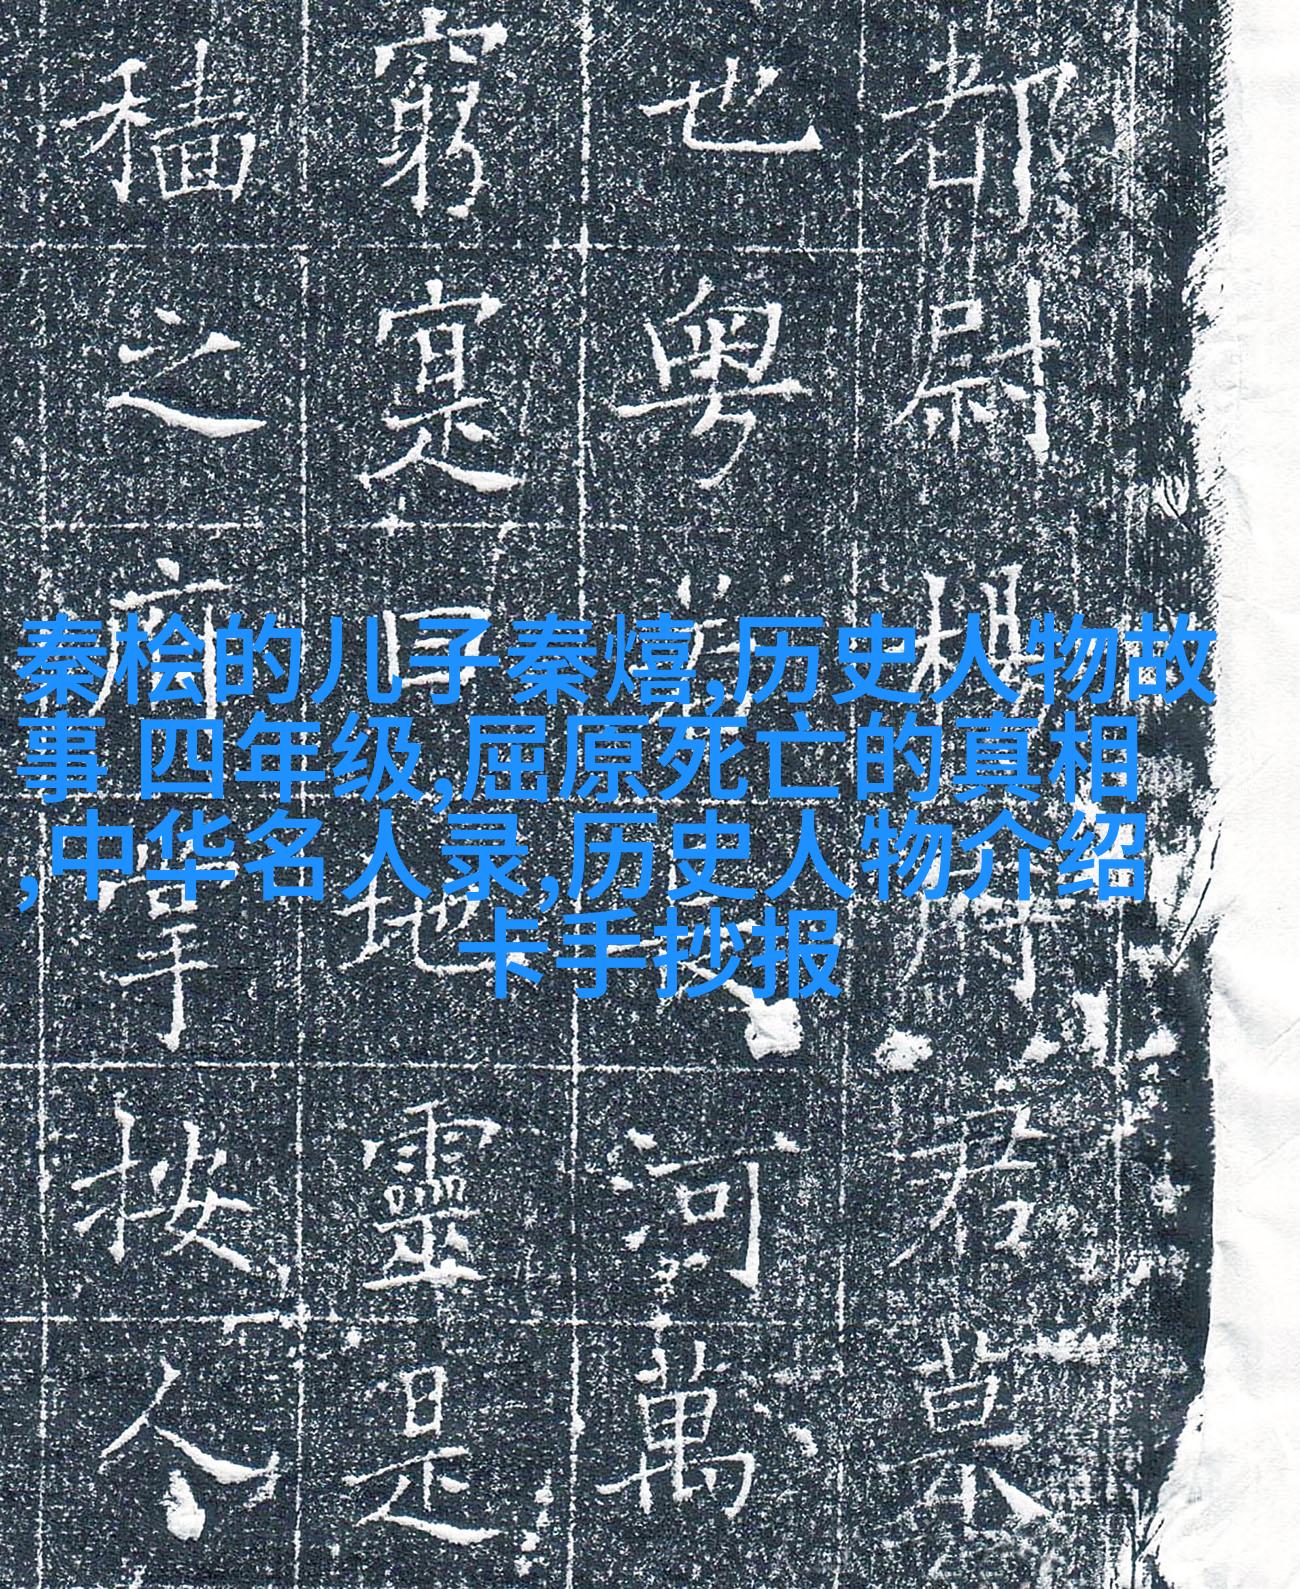 秦桧的儿子秦熺,历史人物故
事 四年级,屈原死亡的真相
,中华名人录,历史人物介绍
卡手抄报
都尉楊府君
也粤河萬
窮寔曰地靈是
穡之罕按人